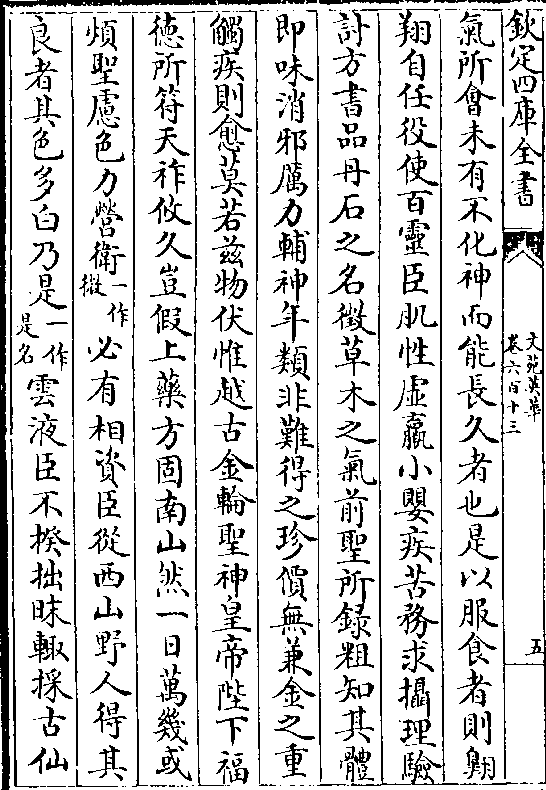 欽定四庫全書
文苑英華
卷六百十三
五
氣所會未有不化神而能長久者也是以服食者則翺
翔自任役使百靈臣肌性虛羸小嬰疾苦務求攝理驗
討方書品丹石之名徵草木之氣前聖所録粗知其體
即味消邪厲力輔神年類非難得之珍價無兼金之重
觸疾則愈莫若兹物伏惟越古金輪聖神皇帝陛下福
徳所符天祚攸久豈假上藥方固南山然一日萬幾或
煩聖慮色力營衛一作㣲必有相資臣從西山野人得其
良者其色多白乃是一作是名雲液臣不揆拙昧輙採古仙